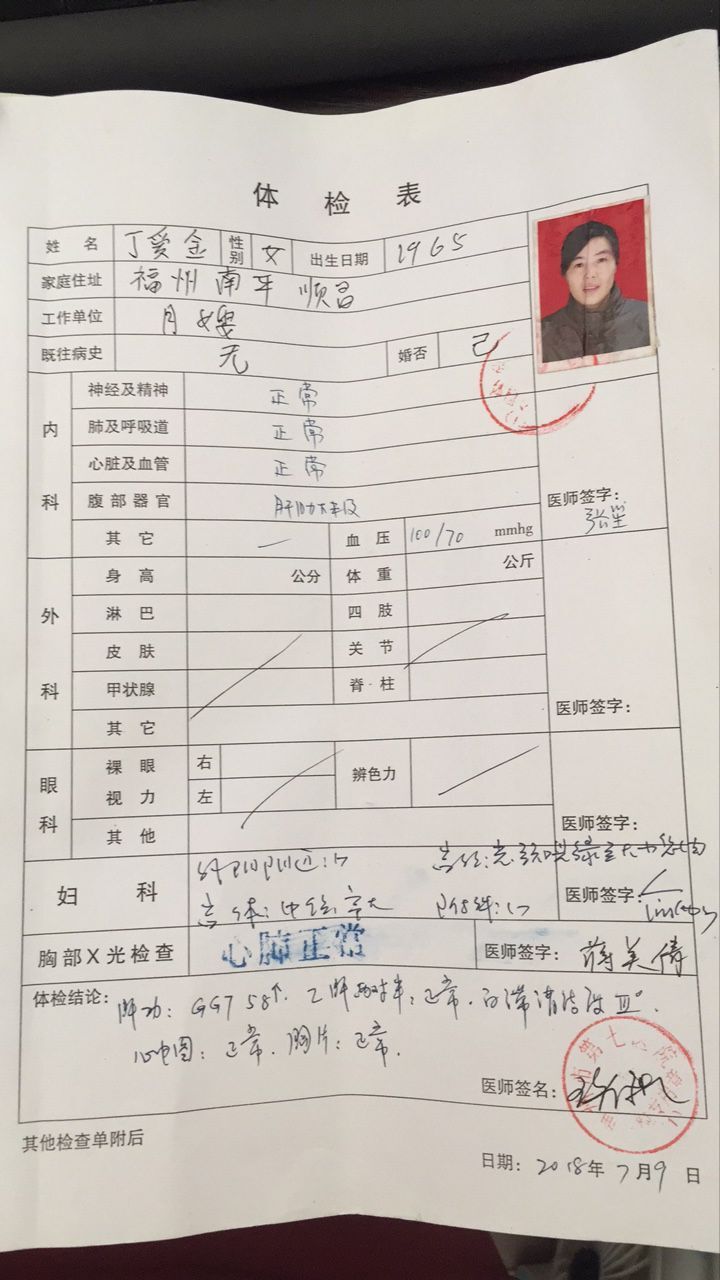 体 检 表
姓 名 丁爱金 性别 女 出生日期 1965
家庭住址 福州南平顺昌
工作单位 月嫂
既往病史 无 婚否 已
内科
神经及精神 正常
肺及呼吸道 正常
心脏及血管 正常
腹部器官 肝肋下未及
医师签字:
其它 — 血压 100/70 mmhg
外科
身高 公分 体重 公斤
淋巴 四肢
皮肤 关节
甲状腺 脊柱
其它
医师签字:
眼科
裸眼视力 右 左 辨色力
其他
医师签字:
妇 科
医师签字:
胸部X光检查 心肺正常 医师签字: 蒋美倩
体检结论: 肝功: GGT 58↑. 乙肝两对半: 正常. 白带清洁度 III°.
心电图: 正常. 胸片: 正常.
医师签名:
其他检查单附后
日期: 2018年7月9日